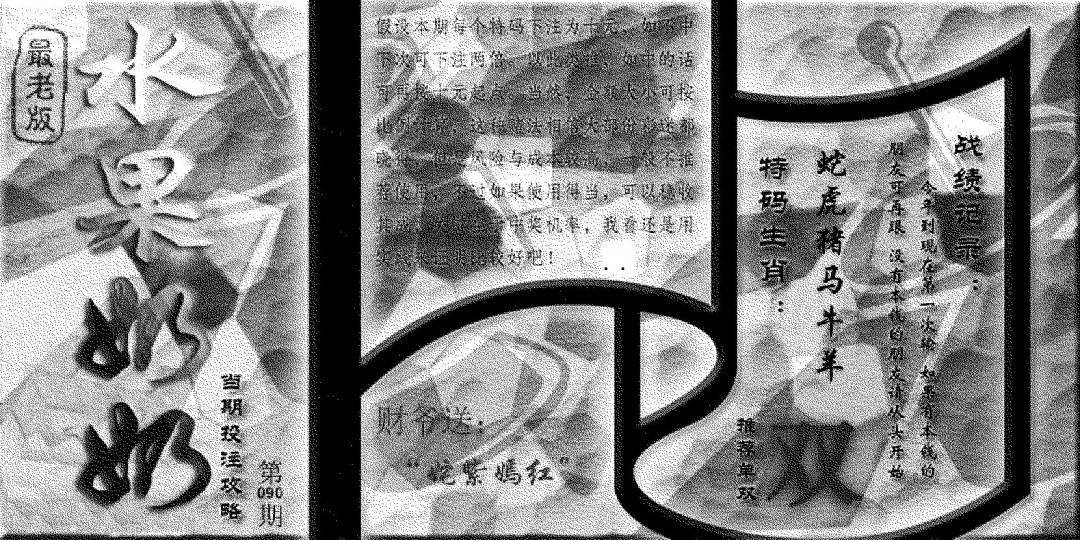 最老版
水果奶奶
当期投注攻略
第
090
期
假设本期每个特码下注为十元，如不中
下次可下注两倍，以此类推，如中的话
可再按十元起点，当然，金额大小可按
比例
这种赌法相信大部份
都
风险与成本较高，一般不推
荐使用，不过如果使用得当，可以稳收
中奖机率，我看还是用
比较好吧！
财爷送：
“蛇紫嫣红”
战绩记录：
今年到现在第一次输 如果有本钱的
朋友可再跟 没有本钱的朋友请从头开始
蛇虎猪马牛羊
特码生肖：
推荐单双
双